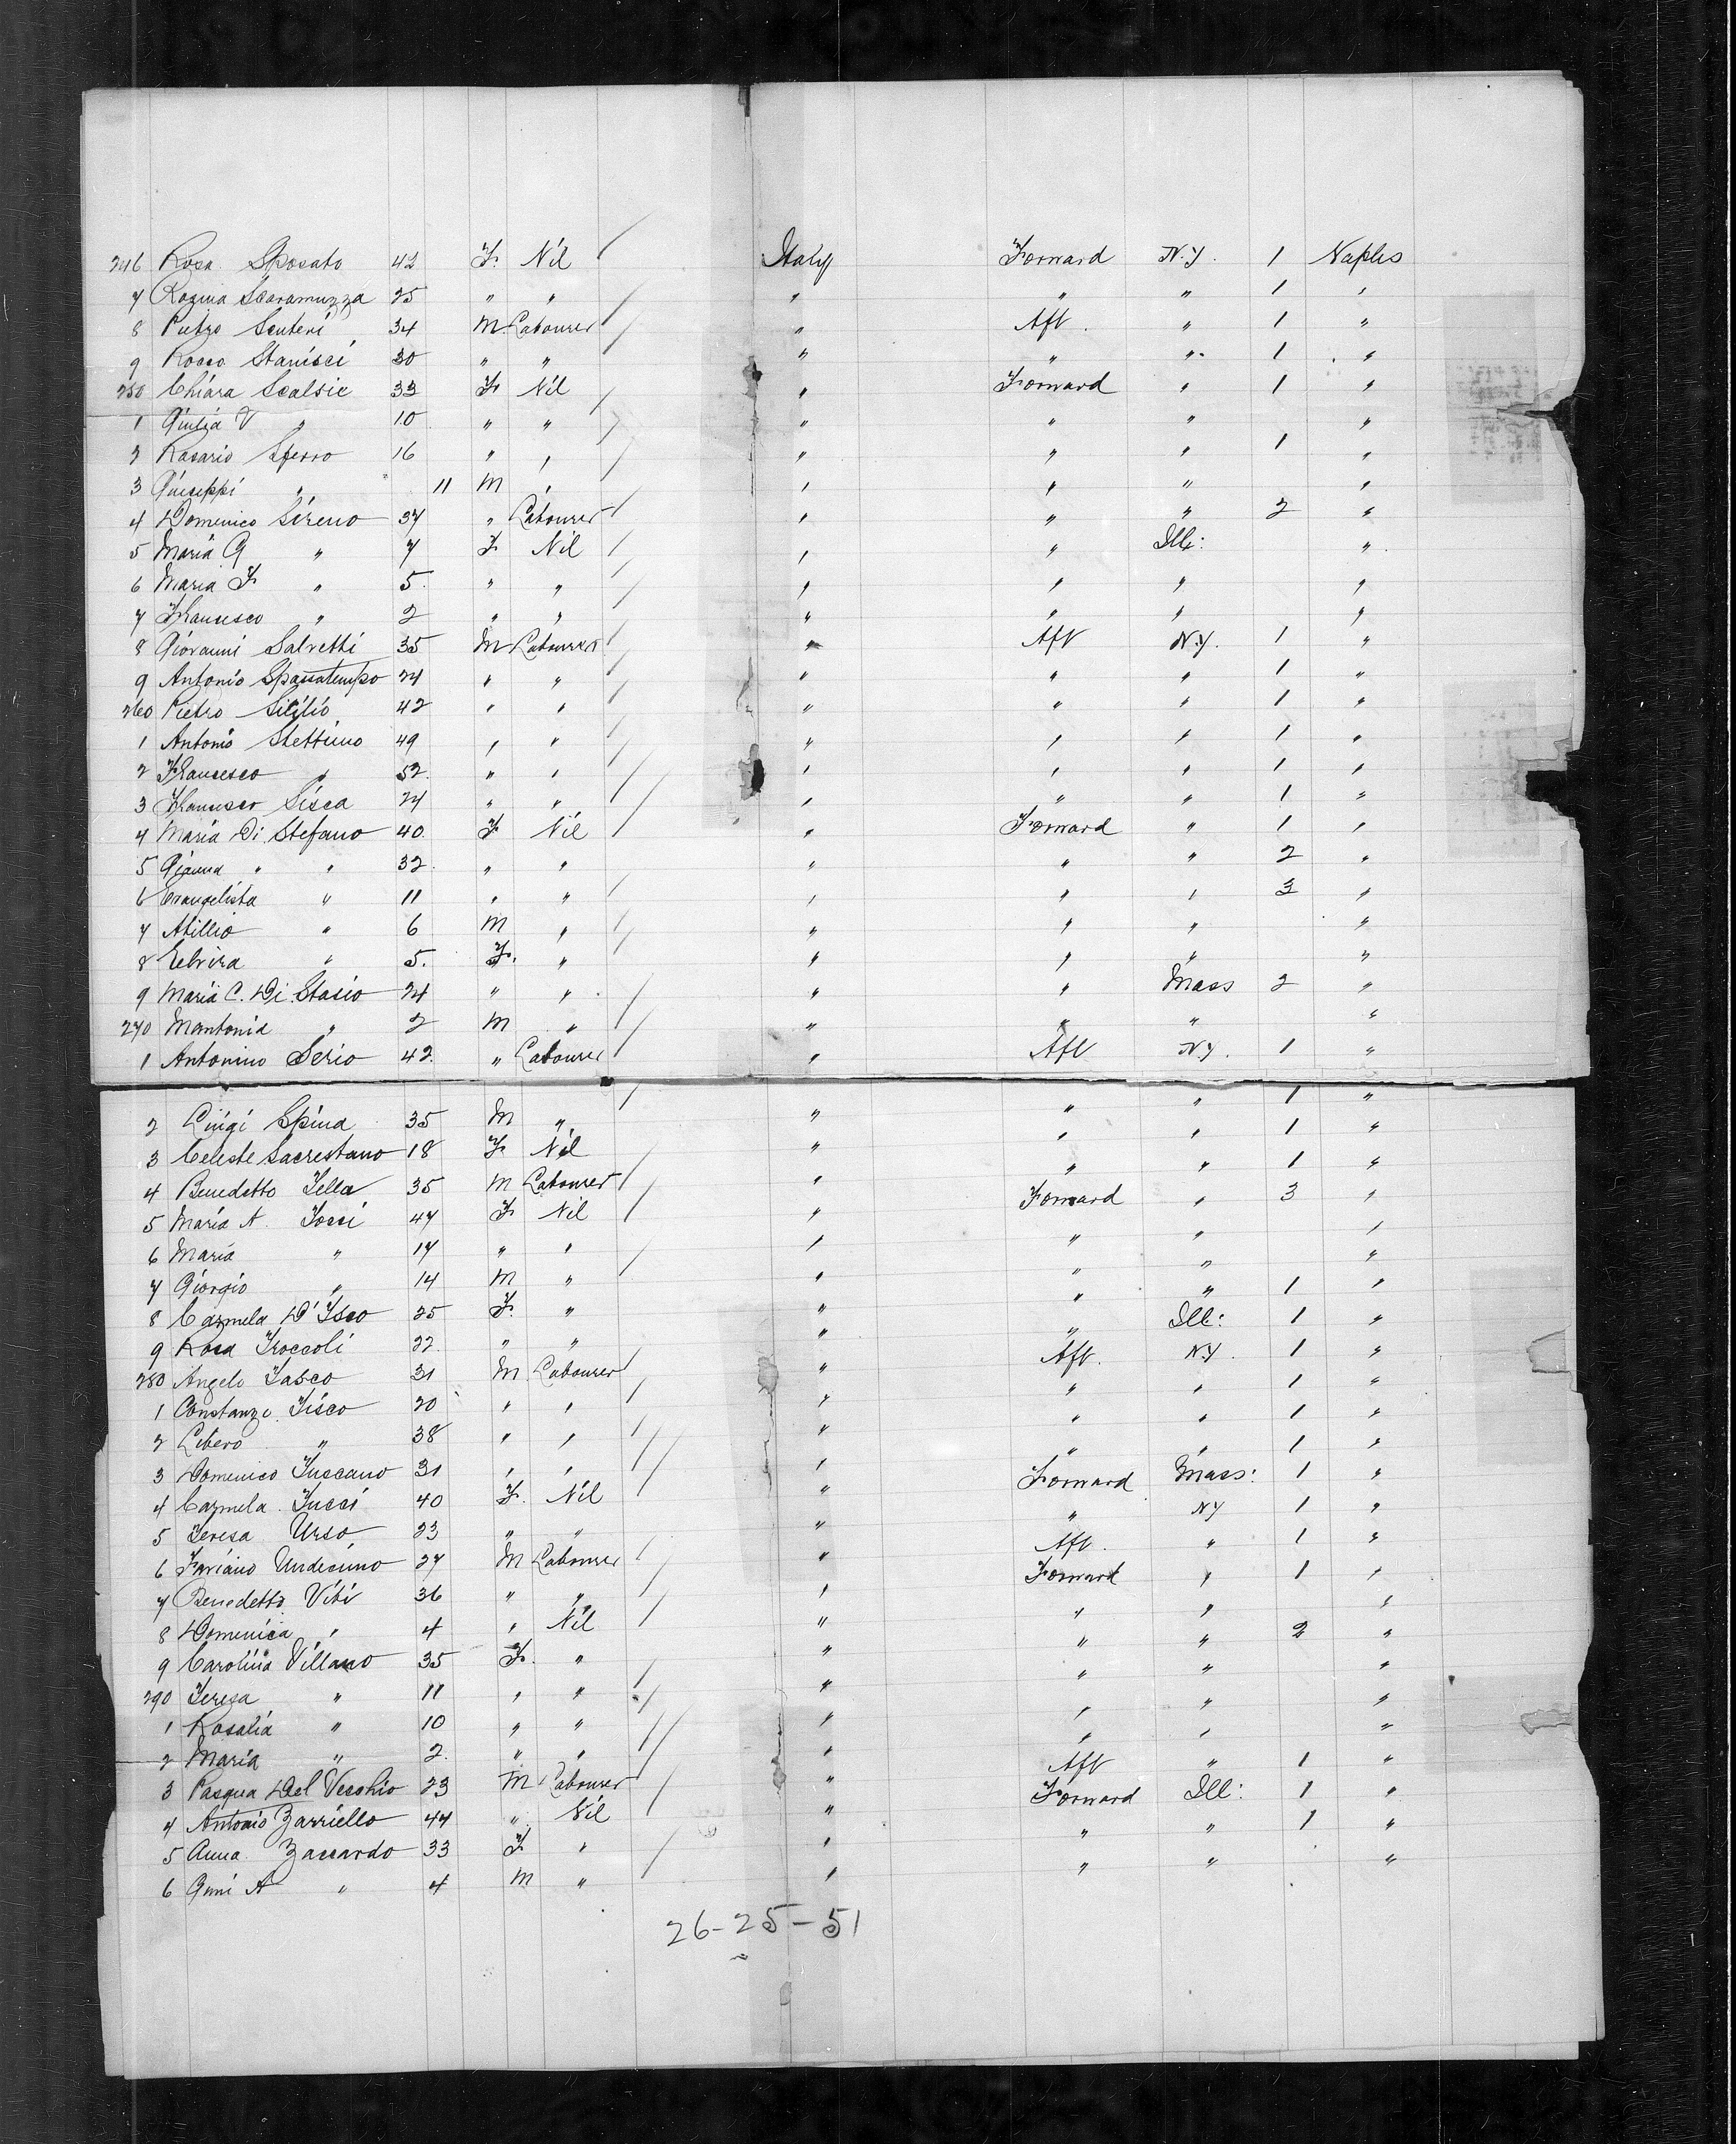 246 Rosa Sposato 42 F. Nil / Italy Forward N.Y. 1 Naples
7 Rozina Scaramuzza 25 " " / " " " 1 "
8 Pietro Scuteri 34 M. Labourer / " Aft. " 1 "
9 Rocco Stanisci 30 " " " " " 1 "
250 Chiara Scalsie 33 F Nil / " Forward " 1 "
1 Giulia V " 10 " " / " " " "
2 Rosario Sferro 16 " " / " " " 1 "
3 Giuseppi " 11 M " " " " "
4 Domenico Sireno 37 " Labourer / " " " 2 "
5 Maria G " 7 F Nil / " " Ill: "
6 Maria F " 5. " " / " " " "
7 Francesco " 2 " " / " " " "
8 Giovanni Salvetti 35 M Labourer / " Aft N.Y. 1 "
9 Antonio Spassatempo 24 " " / " " " 1 "
260 Pietro 42 " " / " " " 1 "
1 Antonio Stettimo 49 " " / " " " 1 "
2 Francesco " 52. " " / " " " 1 "
3 Francesco Sisca 24 " " / " " " 1 "
4 Maria Di Stefano 40. F Nil / " Forward " 1 "
5 Gianna " " 32. " " " " " 2 "
6 Evangelista " 11 " " / " " " 3 "
7 Atillio " 6 M " / " " " "
8 Eelvira " 5. F. " " " " "
9 Maria C. Di Stasio 24 " " / " " Mass 2 "
270 Mantonia " 2 M " / " " " "
1 Antonino Serio 42. " Labourer / " Aft N.Y. 1 "
2 Luigi Spina 35 M " / " " " 1 "
3 Celeste Sacrestano 18 F Nil " " " 1 "
4 Benedetto Tella 35 M Labourer / " " " 1 "
5 Maria A. Tossi 47 F Nil / " Forward " 3 "
6 Maria " 17 " " / " " " "
7 Giorgio " 14 M " " " " "
8 Carmela D'Isco 25 F. " " " " 1 "
9 Rosa Troccoli 22. " " " " Ill: 1 "
280 Angelo Tasco 31 M Labourer / " Aft. N.Y. 1 "
1 Constanze Tisco 20 " " / " " " 1 "
2 Libero " 38 " " / " " " 1 "
3 Domenico Tuscano 31 " " / " " " 1 "
4 Carmela Tucci 40 F. Nil / " Forward Mass: 1 "
5 Teresa Urso 23 " " " " NY 1 "
6 Faviano Undecimo 27 M Labourer / " Aft. " 1 "
7 Benedetto Viti 36 " " / " Forward " 1 "
8 Domenica " 4 " Nil / " " " "
9 Carolina Villano 35 F. " " " " 2 "
290 Teresa " 11 " " / " " " "
1 Rosalia " 10 " " / " " " "
2 Maria " 2. " " / " " " "
3 Pasqua Del Vecchio 23 M Labourer / " Aft " 1 "
4 Antonio Zarriello 44 " Nil / " Forward Ill: 1 "
5 Anna Zaccardo 33 F " / " " " 1 "
6 A " 4 M " / " " " "
26-25-51